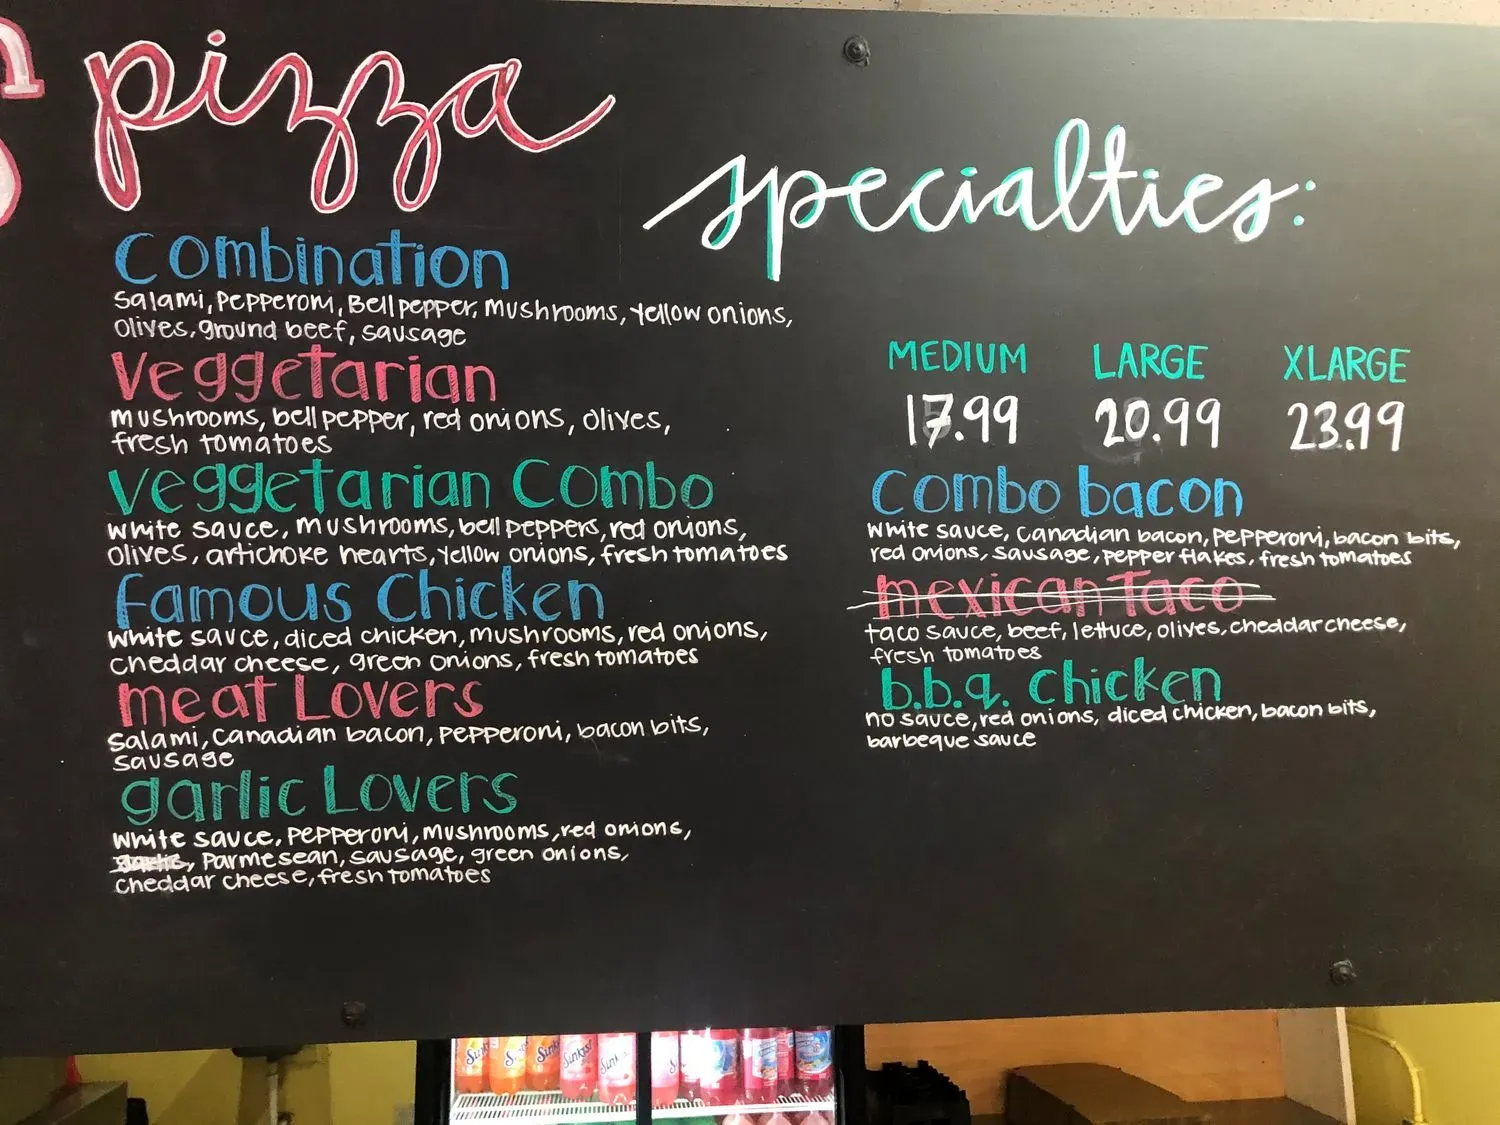 pizza
specialties:
Combination
Salami, Pepperoni, Bell pepper, mushrooms, yellow onions,
Olives, ground beef, sausage
Veggetarian
mushrooms, bell pepper, red onions, olives,
fresh tomatoes
Veggetarian Combo
White sauce, mushrooms, bell peppers, red onions,
Olives, artichoke hearts, yellow onions, fresh tomatoes
Famous Chicken
White sauce, diced chicken, mushrooms, red onions,
cheddar cheese, green onions, fresh tomatoes
meat Lovers
Salami, Canadian bacon, pepperoni, bacon bits,
sausage
garlic Lovers
White sauce, pepperoni, mushrooms, red onions,
garlic, Parmesean, sausage, green onions,
cheddar cheese, fresh tomatoes
MEDIUM LARGE XLARGE
17.99 20.99 23.99
Combo bacon
White sauce, Canadian bacon, pepperoni, bacon bits,
red onions, sausage, pepper flakes, fresh tomatoes
mexican Taco
taco sauce, beef, lettuce, olives, cheddar cheese,
fresh tomatoes
b.b.q. Chicken
no sauce, red onions, diced chicken, bacon bits,
barbeque sauce
Sunkist